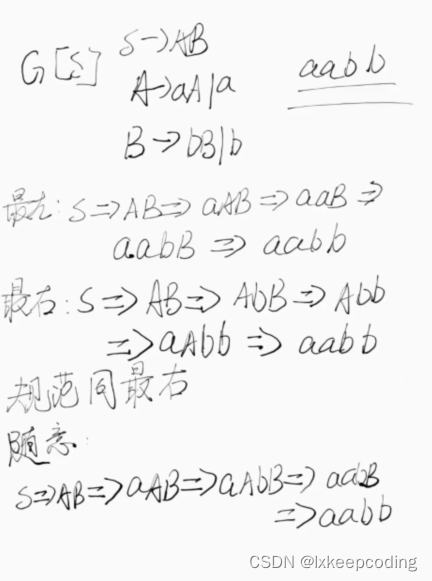 S→AB
G[S]
A→aA|a
aabb
B→bB|b
最左: S⇒AB⇒aAB⇒aaB⇒
aabB⇒aabb
最右: S⇒AB⇒AbB⇒Abb
⇒aAbb⇒aabb
规范同最右
随意:
S⇒AB⇒aAB⇒aAbB⇒aabB
⇒aabb
CSDN @lxkeepcoding